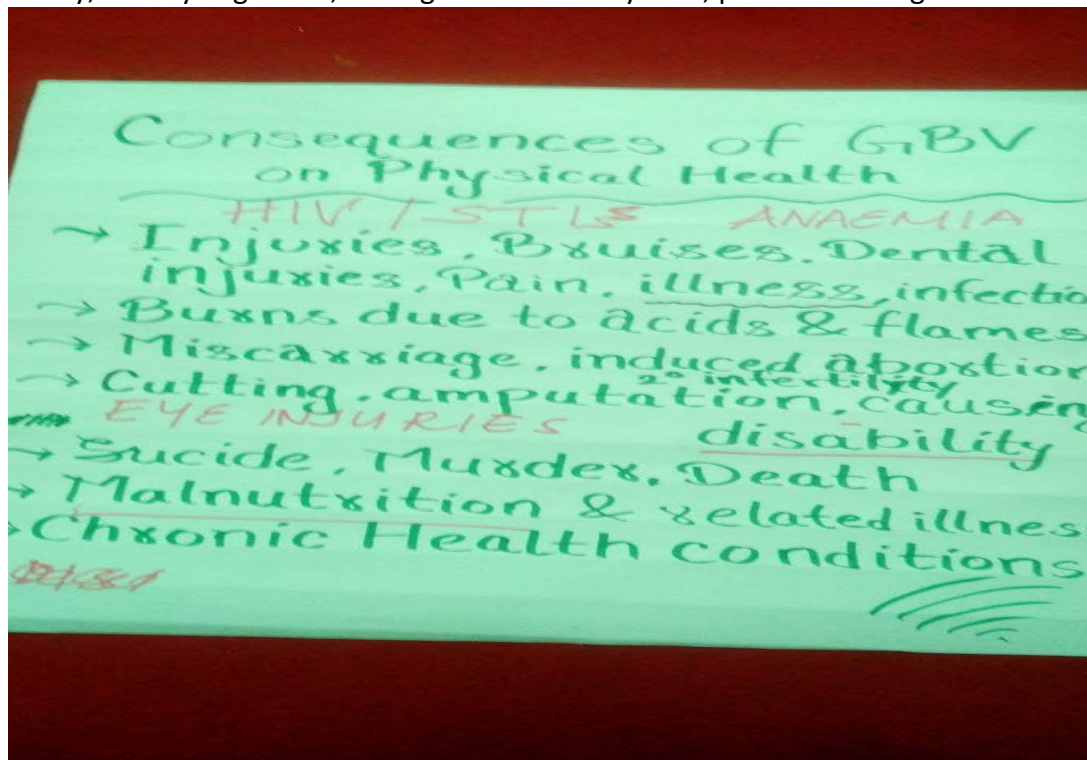 Consequences of GBV
on Physical Health
HIV / STIs ANAEMIA
→ Injuries, Bruises, Dental
injuries, Pain, illness, infectio
→ Burns due to acids & flames
→ Miscarriage, induced abortion
2° infertility
→ Cutting, amputation, causing
EYE INJURIES disability
→ Sucide, Murder, Death
→ Malnutrition & related illnes
→ Chronic Health conditions